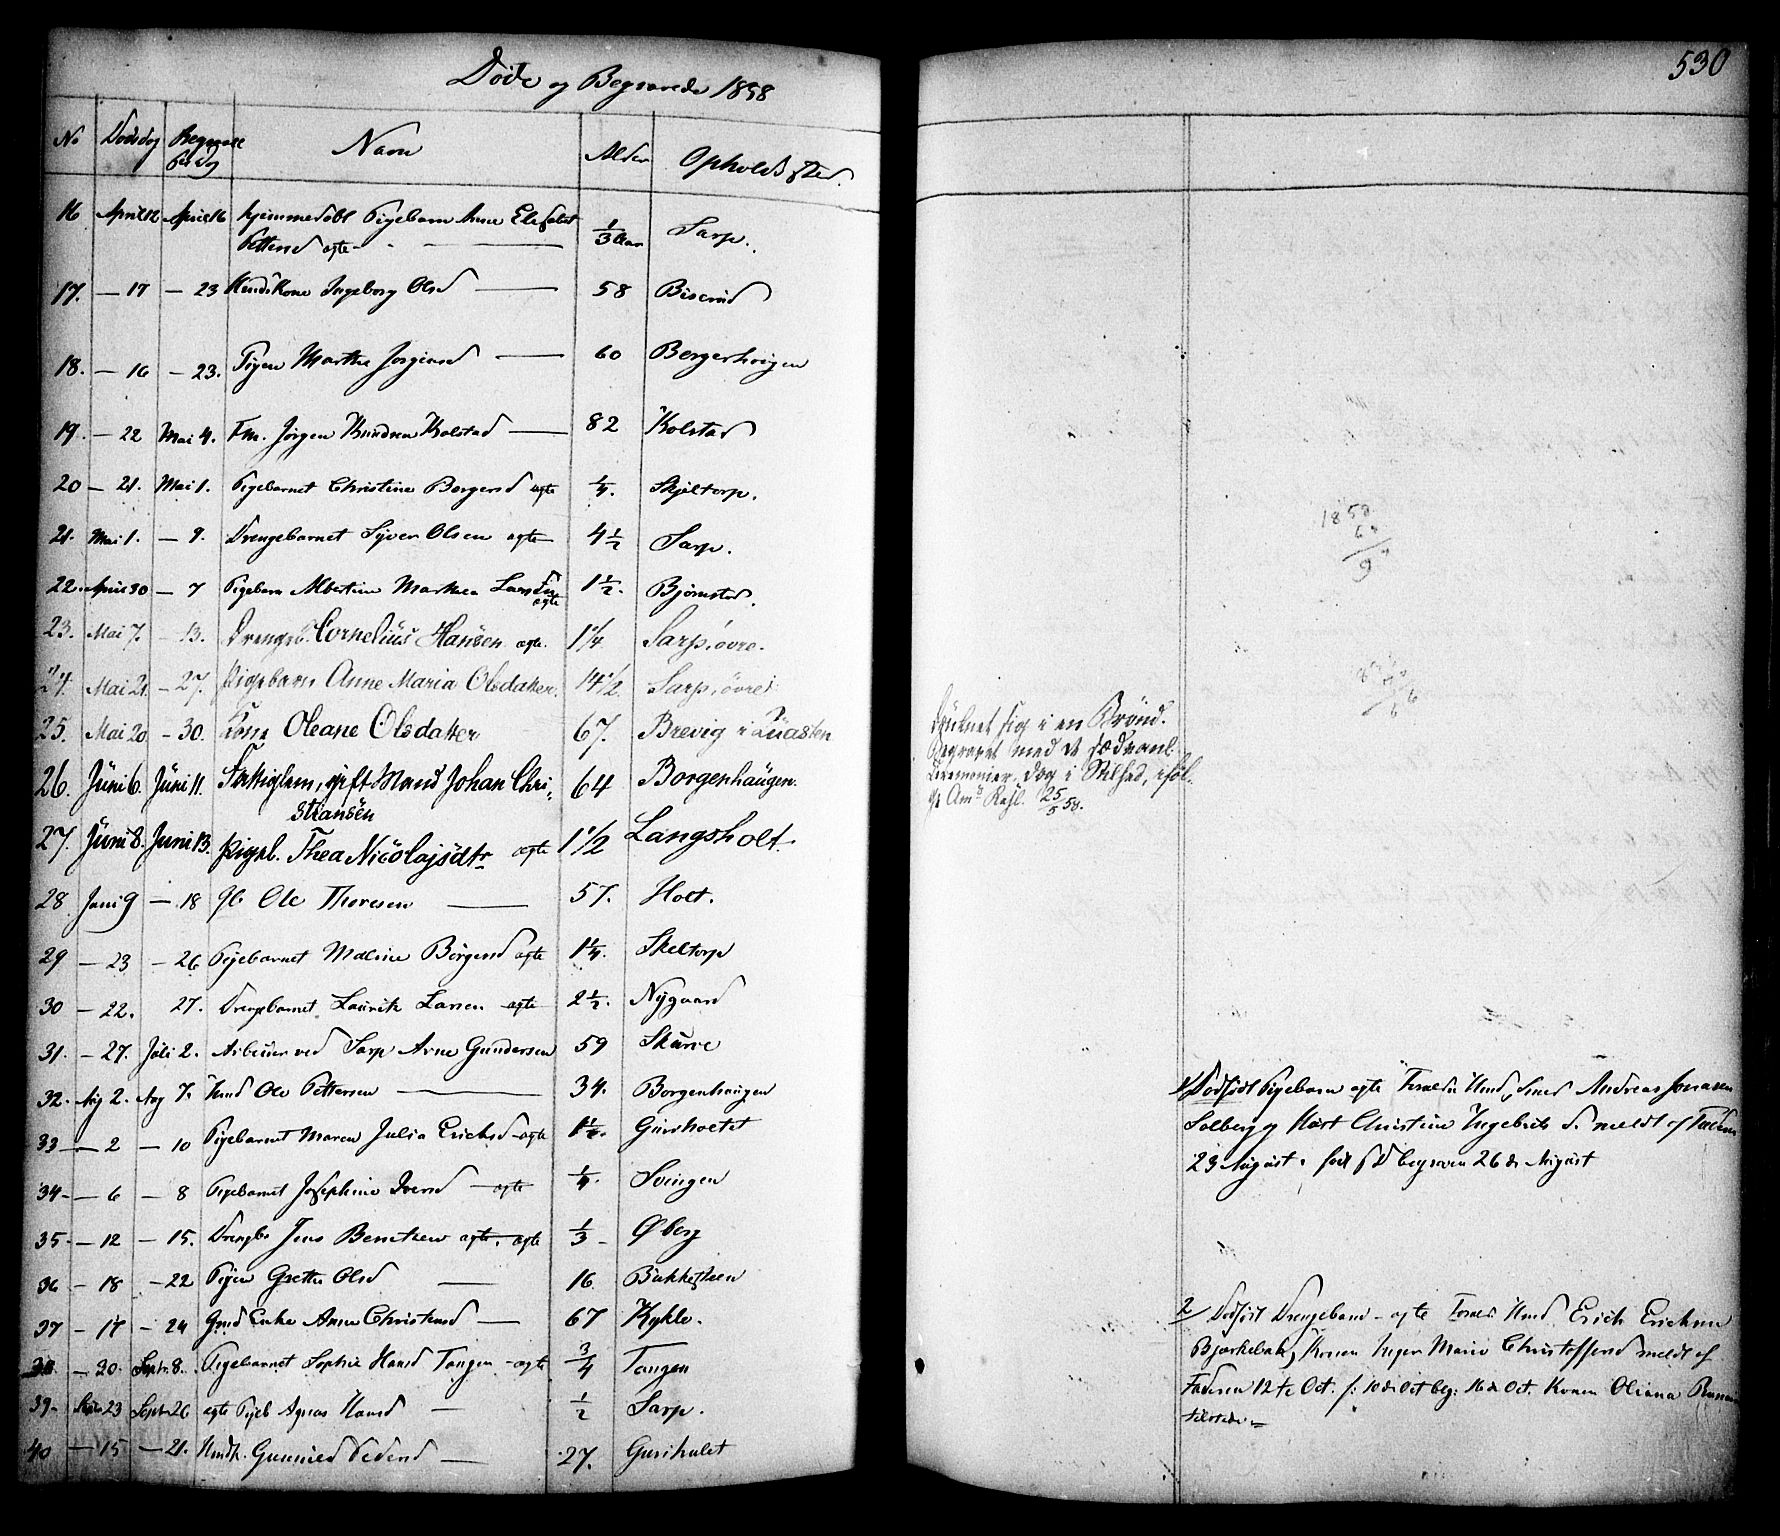 Døde og Begravede 1858
530
No Dødsdag Begravelsesdag Navn Alder Opholdssted.
16 April 12 April 16 hjemmedøbt Pigebarn Anne Elisabet
Petersd ægte 1/3 Aar Sarp.
17. — 17 — 23 Huuskone Ingeborg Olsd 58
18. — 16 — 23. Pigen Marthe Jørgensd 60 Bergerhougen
19. — 22 Mai 4. Fm. Jørgen Knudsen Kolstad 82 Kolstad
20 — 21. Mai 1. Pigebarnet Christine Borgersd ægte 1/4. Skjeltorp.
21. Mai 1. — 9. Drengebarnet Syver Olsen ægte 4 1/2 Sarp.
22. April 30 — 7 Pigebarn Albertine Mathea ægte 1 1/2. Bjørnstad.
23. Mai 7. — 13. Drengeb. Cornelius Hansen ægte. 1 1/4 Sarp, øvre.
24. Mai 21. — 27. Pigebarn Anne Maria Olsdatter. 14 1/2. Sarp, øvre
25. Mai 20 — 30. Kone Oleane Olsdatter 67. Brevig i
26. Juni 6. Juni 11. Fattiglem, gift Mand Johan Chri-
stiansen 64 Borgenhaugen.
27. Juni 8. Juni 13. Pigeb. Thea Nicolajsdtr ægte 1 1/2 Langsholt.
28 Juni 9 — 18 Ole Thoresen 57. Holt.
29 — 23 — 26 Pigebarnet Maline Borgersd ægte 1 1/4. Skeltorp
30 — 22. 27. Drengebarnet Laurits Larsen ægte 2 1/2. Nygaard
31. — 27. Juli 2. Arbeider ved Sarp Arne Gundersen 59 Skurve
32. Aug 2. Aug 7. Huusmd Ole Pettersen 34. Borgenhaugen
33 — 2 — 10 Pigebarnet Maren Julia Ericksd ægte 1 1/4.
34 — 6 — 8 Pigebarnet Josephine Iversd ægte 1/4. Svingen
35 — 12 — 15. Drengb. Jens Berntsen ægte. ægte 1/3 Øberg
36 — 18 — 22 Pigen Grethe Olsd 16 Bakkesteen
37 — 17 — 24 Gmd Enke Anne Christensd 67 Kykle.
38. — 30. Septr. 8. Pigebarnet Sophie Hansd Tangen ægte 3/4 Tangen
39 Septr 23 Septr 26 ægte Pigeb Agnes Hansd 1/2 Sarp.
40 — 15 — 21. Huusk. Gunnild Pedersd 27.
1858
Druknet sig i en Brønd.
Begravet med de sædvanl.
Ceremonier. dog i Stilhed, ifølge
Amts Resl. 25/5 58.
1/ Dødfødt Pigebarn ægte Forældre Huusmd Andreas Jonasen
Solberg og Kust Christine Ingebrets d. meldt af Faderen
23 August. født s D begraven 26 de August
2/ Dødfødt Drengebarn – ægte Forældre Huusmd Erich Ericksen
Bjørkebak, Konen Inger Marie Christoffersd meldt af
Faderen 12te Oct. f: 10de Oct beg: 16de Oct. Konen Oliana
tilstede